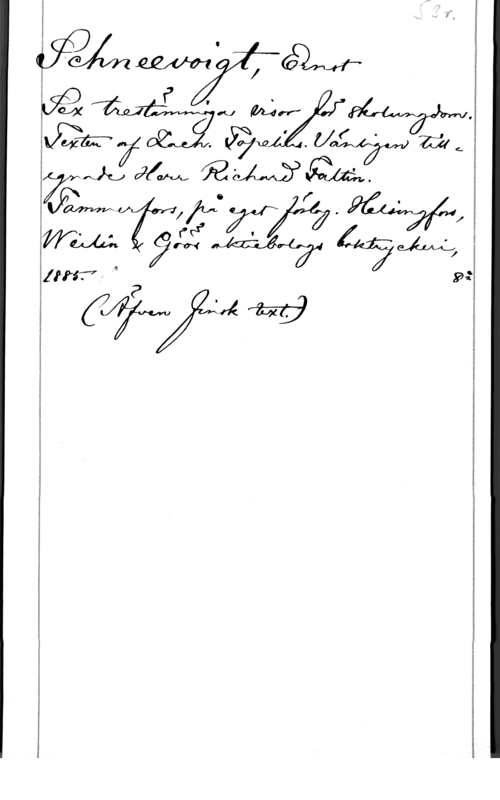 53 r.
Schneevoigt, Ernst
Sex trestämmiga visor för skolungdom.
Texten af Zach. Topelius. Vänligen till-
egnade Herr Richard Faltin.
Tammerfors, på eget förlag. Helsingfors,
Weilin & Göös aktiebolags boktryckeri,
1885. 8:o
(Äfven finsk text.)